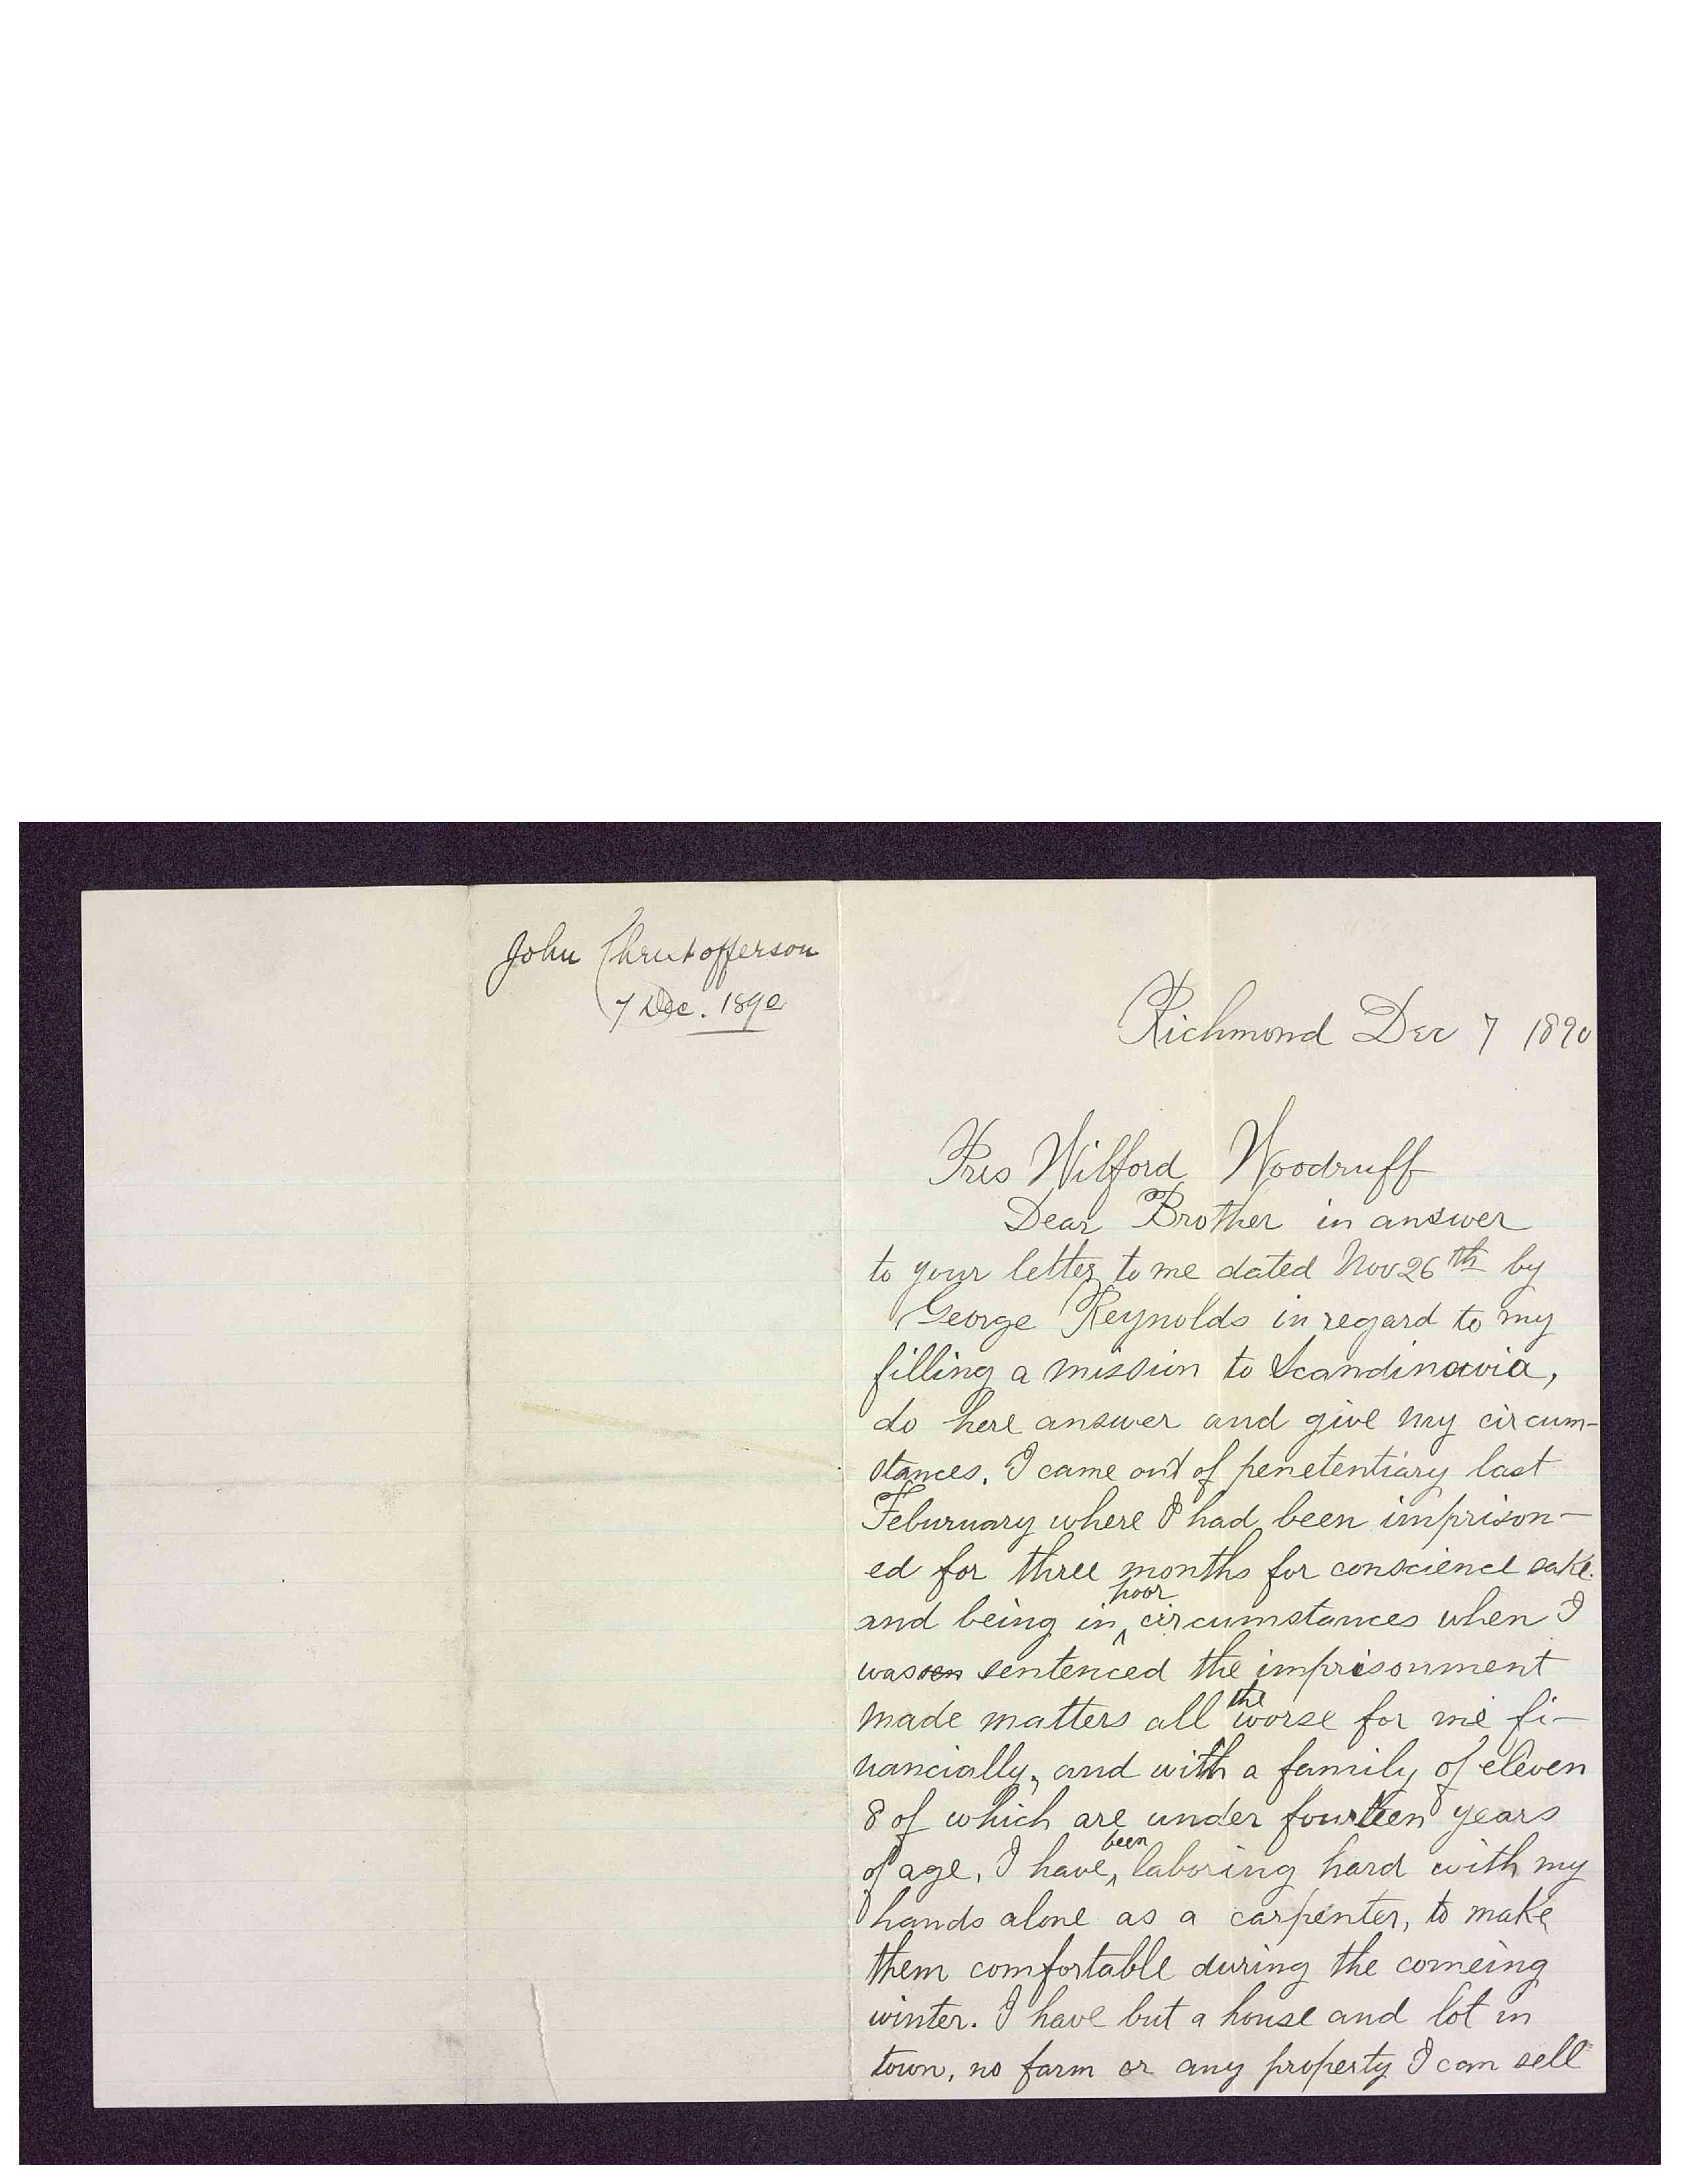 John Christofferson
7 Dec. 1890
Richmond Dec 7 1890
Pres Wilford Woodruff
Dear Brother in answer
to your letter to me dated Nov 26th by
George Reynolds in regard to my
filling a mission to Scandinavia,
do here answer and give my circum-
stances. I came out of penetentiary last
Feburuary where I had been imprison-
ed for three months for conscience sake.
and being in ^poor circumstances when I
was sentenced the imprisonment
made matters all the worse for me fi-
nancially, and with a family of eleven
8 of which are under fourteen years
of age, I have ^been laboring hard with my
hands alone as a carpenter, to make
them comfortable during the comeing
winter. I have but a house and lot in
town, no farm or any property I can sell